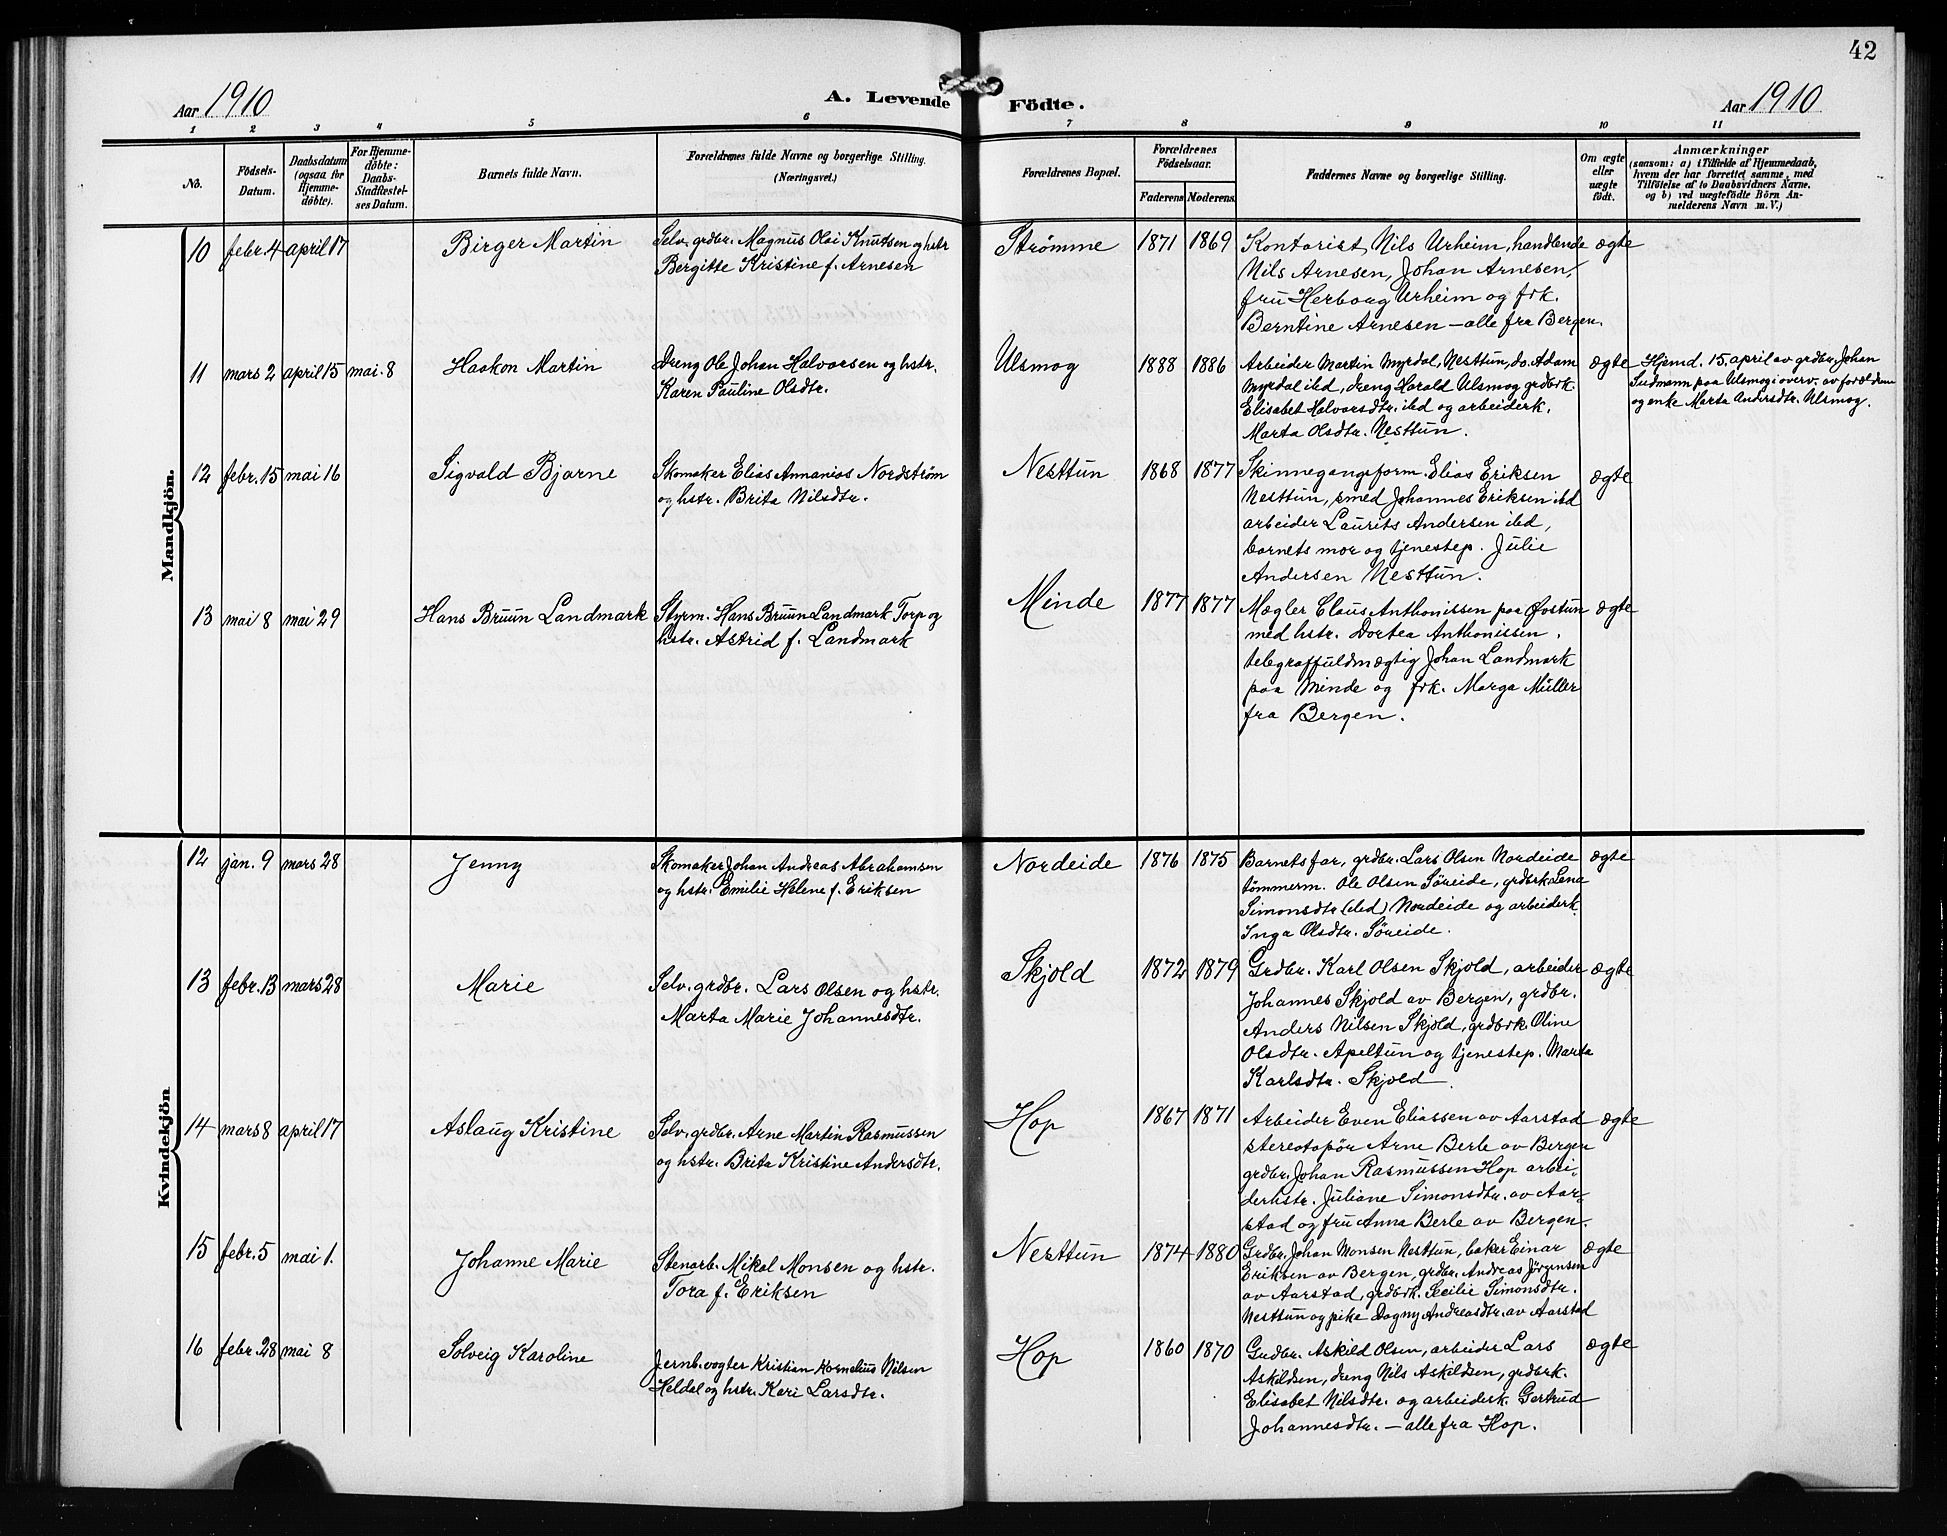 42
Aar 1910
A. Levende Födte.
Aar 1910
1 2 3 4 5 6 7 8 9 10 11
No.
Födsels-
Datum.
Daabsdatum
(ogsaa for
Hjemme-
döbte).
For Hjemme-
döbte:
Daabs-
Stadfæstel-
ses Datum.
Barnets fulde Navn.
Forældrenes fulde Navne og borgerlige Stilling.
(Næringsvei.)
Forældrenes Bopæl.
Forældrenes
Födselsaar.
Faderens
Moderens
Faddernes Navne og borgerlige Stilling.
Om ægte
eller
uægte
født.
Anmærkninger
(saasom: a) i Tilfælde af Hjemmedaab,
hvem der har forrettet samme, med
Tilföielse af to Daabsvidners Navne,
og b) ved uægtefödte Börn An-
melderens Navn m. V.)
Mandkjön.
10 febr. 4 april 17
Birger Martin
Selv. grdbr. Magnus Olai Knutsen og hstr
Bergitte Kristine f. Arnesen
Strømme
1871 1869
Kontorist Nils Urheim, handlende
Nils Arnesen, Johan Arnesen,
fru Herborg Urheim og frk.
Berntine Arnesen — alle fra Bergen.
ægte
11 mars 2 april 15 mai 8
Haakon Martin
Dreng Ole Johan Halvorsen og hstr.
Karen Pauline Olsdtr.
Ulsmog
1888 1886
Arbeider Martin Myrdal, Nesttun, do. Adam
Myrdal ibd, dreng Harald Ulsmog grdbrk.
Elisabet Halvorsdtr. ibd og arbeiderk.
Marta Olsdtr. Nesttun.
ægte
Hjemd. 15. april av grdbr. Johan
Sudmann paa Ulsmog i overv. av forældrene
og enke Marta Andersdtr. Ulsmog.
12 febr. 15 mai 16
Sigvald Bjarne
Skomaker Elias Annanias Nordstrøm
og hstr. Brita Nilsdtr.
Nesttun
1868 1877
Skinnegangsform. Elias Eriksen
Nesttun, smed Johannes Eriksen ibd
arbeider Laurits Andersen ibd,
barnets mor og tjenestep. Julie
Andersen Nesttun.
ægte
13 mai 8 mai 29
Hans Bruun Landmark
Styrm. Hans Bruun Landmark Torp og
hstr. Astrid f. Landmark
Minde
1877 1877
Mægler Claus Anthonissen paa Øvstun
med hstr. Dortea Anthonissen.
telegraffuldmægtig Johan Landmark
paa Minde og frk. Marga Müller
fra Bergen.
ægte
Kvindekjön
12 jan. 9 mars 28
Jenny
Skomaker Johan Andreas Abrahamsen
og hstr. Emilie Helene f. Eriksen
Nordeide
1876 1875
Barnets far, grdbr. Lars Olsen Nordeide
tømmerm. Ole Olsen Søreide, grdbrk Lena
Simonsdtr (ibd) Nordeide og arbeiderk.
Inga Olsdtr. Søreide.
ægte
13 febr. 13 mars 28
Marie
Selv. grdbr. Lars Olsen og hstr.
Marta Marie Johannesdtr.
Skjold
1872 1879
Grdbr. Karl Olsen Skjold, arbeider
Johannes Skjold av Bergen, grdbr.
Anders Nilsen Skjold, grdbrk. Oline
Olsdtr. Apeltun og tjenestep. Marta
Karlsdtr. Skjold.
ægte
14 mars 8 april 17
Aslaug Kristine
Selv. grdbr. Arne Martin Rasmussen
og hstr. Brita Kristine Andersdtr.
Hop
1867 1871
Arbeider Even Eliassen av Aarstad
stereotapør Arne Berle av Bergen
grdbr. Johan Rasmussen Hop arbei-
derhstr. Juliane Simonsdtr. av Aar-
stad og fru Anna Berle av Bergen.
ægte
15 febr. 5 mai 1.
Johanne Marie
Stenarb. Mikal Monsen og hstr.
Tora f. Eriksen
Nesttun
1874 1880
Grdbr. Johan Monsen Nesttun, baker Einar
Eriksen av Bergen, grdbr. Andreas Jørgensen
av Aarstad, grdbrk. Secilie Simonsdtr.
Nesttun og pike Dagny Andreasdtr. av Aarstad
ægte
16 febr. 28 mai 8
Solveig Karoline
Jernb. vogter Kristian Kornelius Nilsen
Heldal og hstr. Kari Larsdtr.
Hop
1860 1870
Grdbr. Askild Olsen, arbeider Lars
Askildsen, dreng Nils Askildsen, grdbrk.
Elisabet Nilsdtr. og arbeiderk. Gertrud
Johannesdtr. — alle fra Hop.
ægte